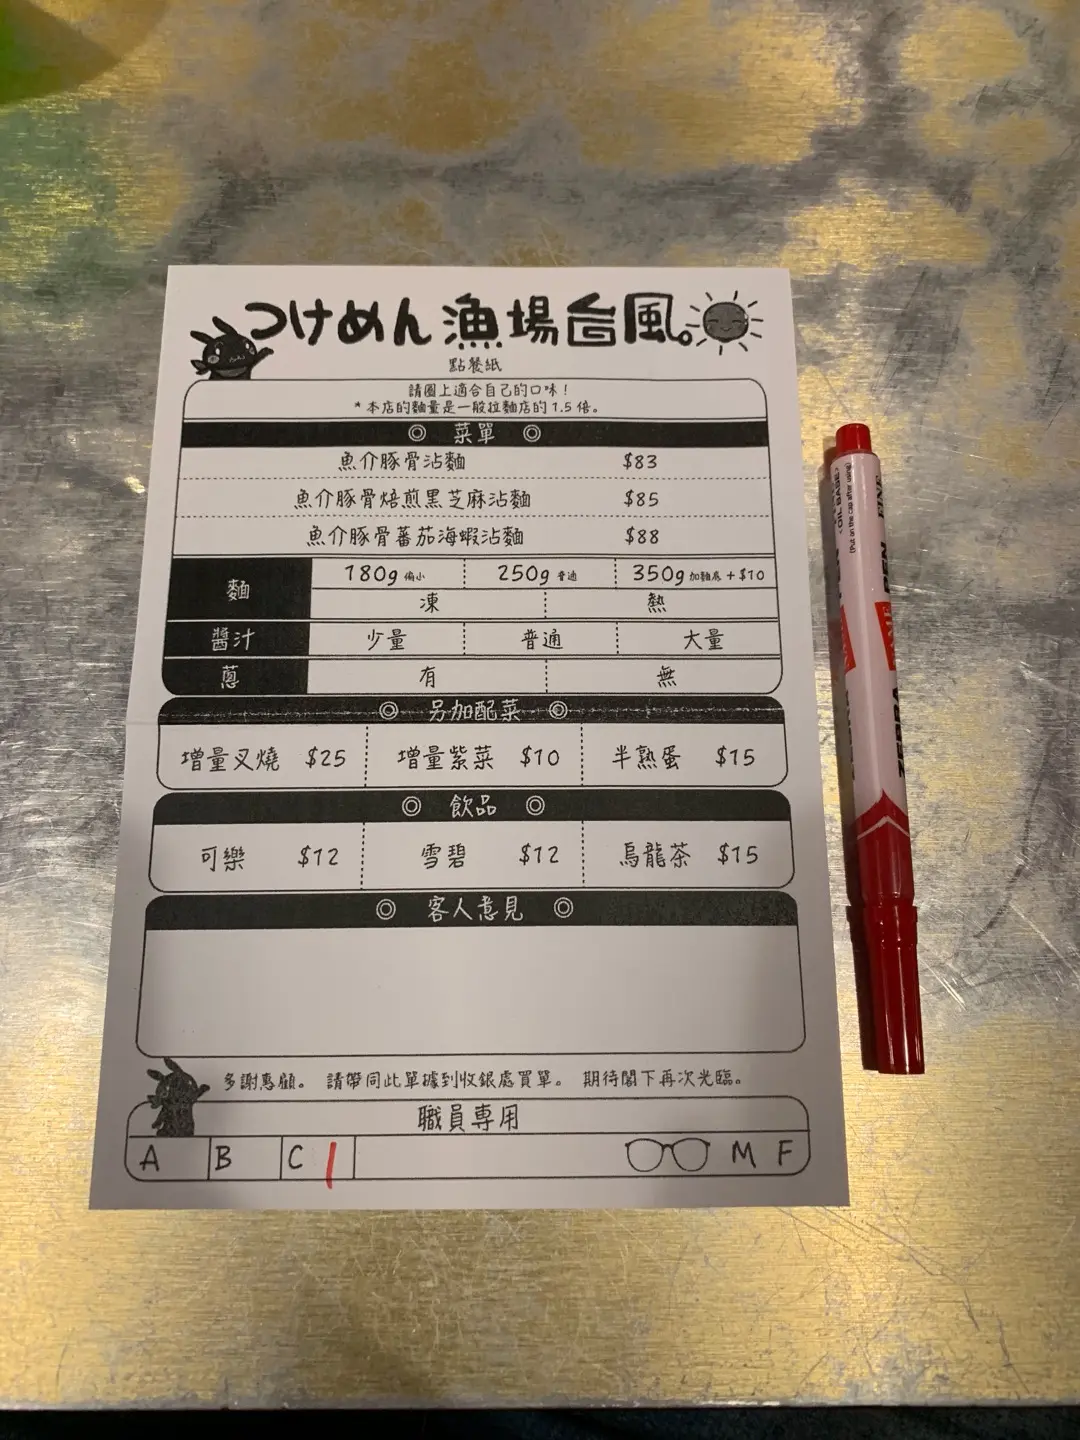 つけめん 漁場台風。
點餐紙
請圈上適合自己的口味！
* 本店的麵量是一般拉麵店的1.5倍。
◎ 菜單 ◎
魚介豚骨沾麵 $83
魚介豚骨焙煎黑芝麻沾麵 $85
魚介豚骨蕃茄海蝦沾麵 $88
麵 180g 偏小 250g 普通 350g 加麵底 + $10
凍 熱
醬汁 少量 普通 大量
蔥 有 無
◎ 另加配菜 ◎
增量叉燒 $25 增量紫菜 $10 半熟蛋 $15
◎ 飲品 ◎
可樂 $12 雪碧 $12 烏龍茶 $15
◎ 客人意見 ◎
多謝惠顧。 請帶同此單據到收銀處買單。 期待閣下再次光臨。
職員專用
A B C | M F
<OIL BASE>
(Put on the cap after using)
FINE
PEN
ZEBRA